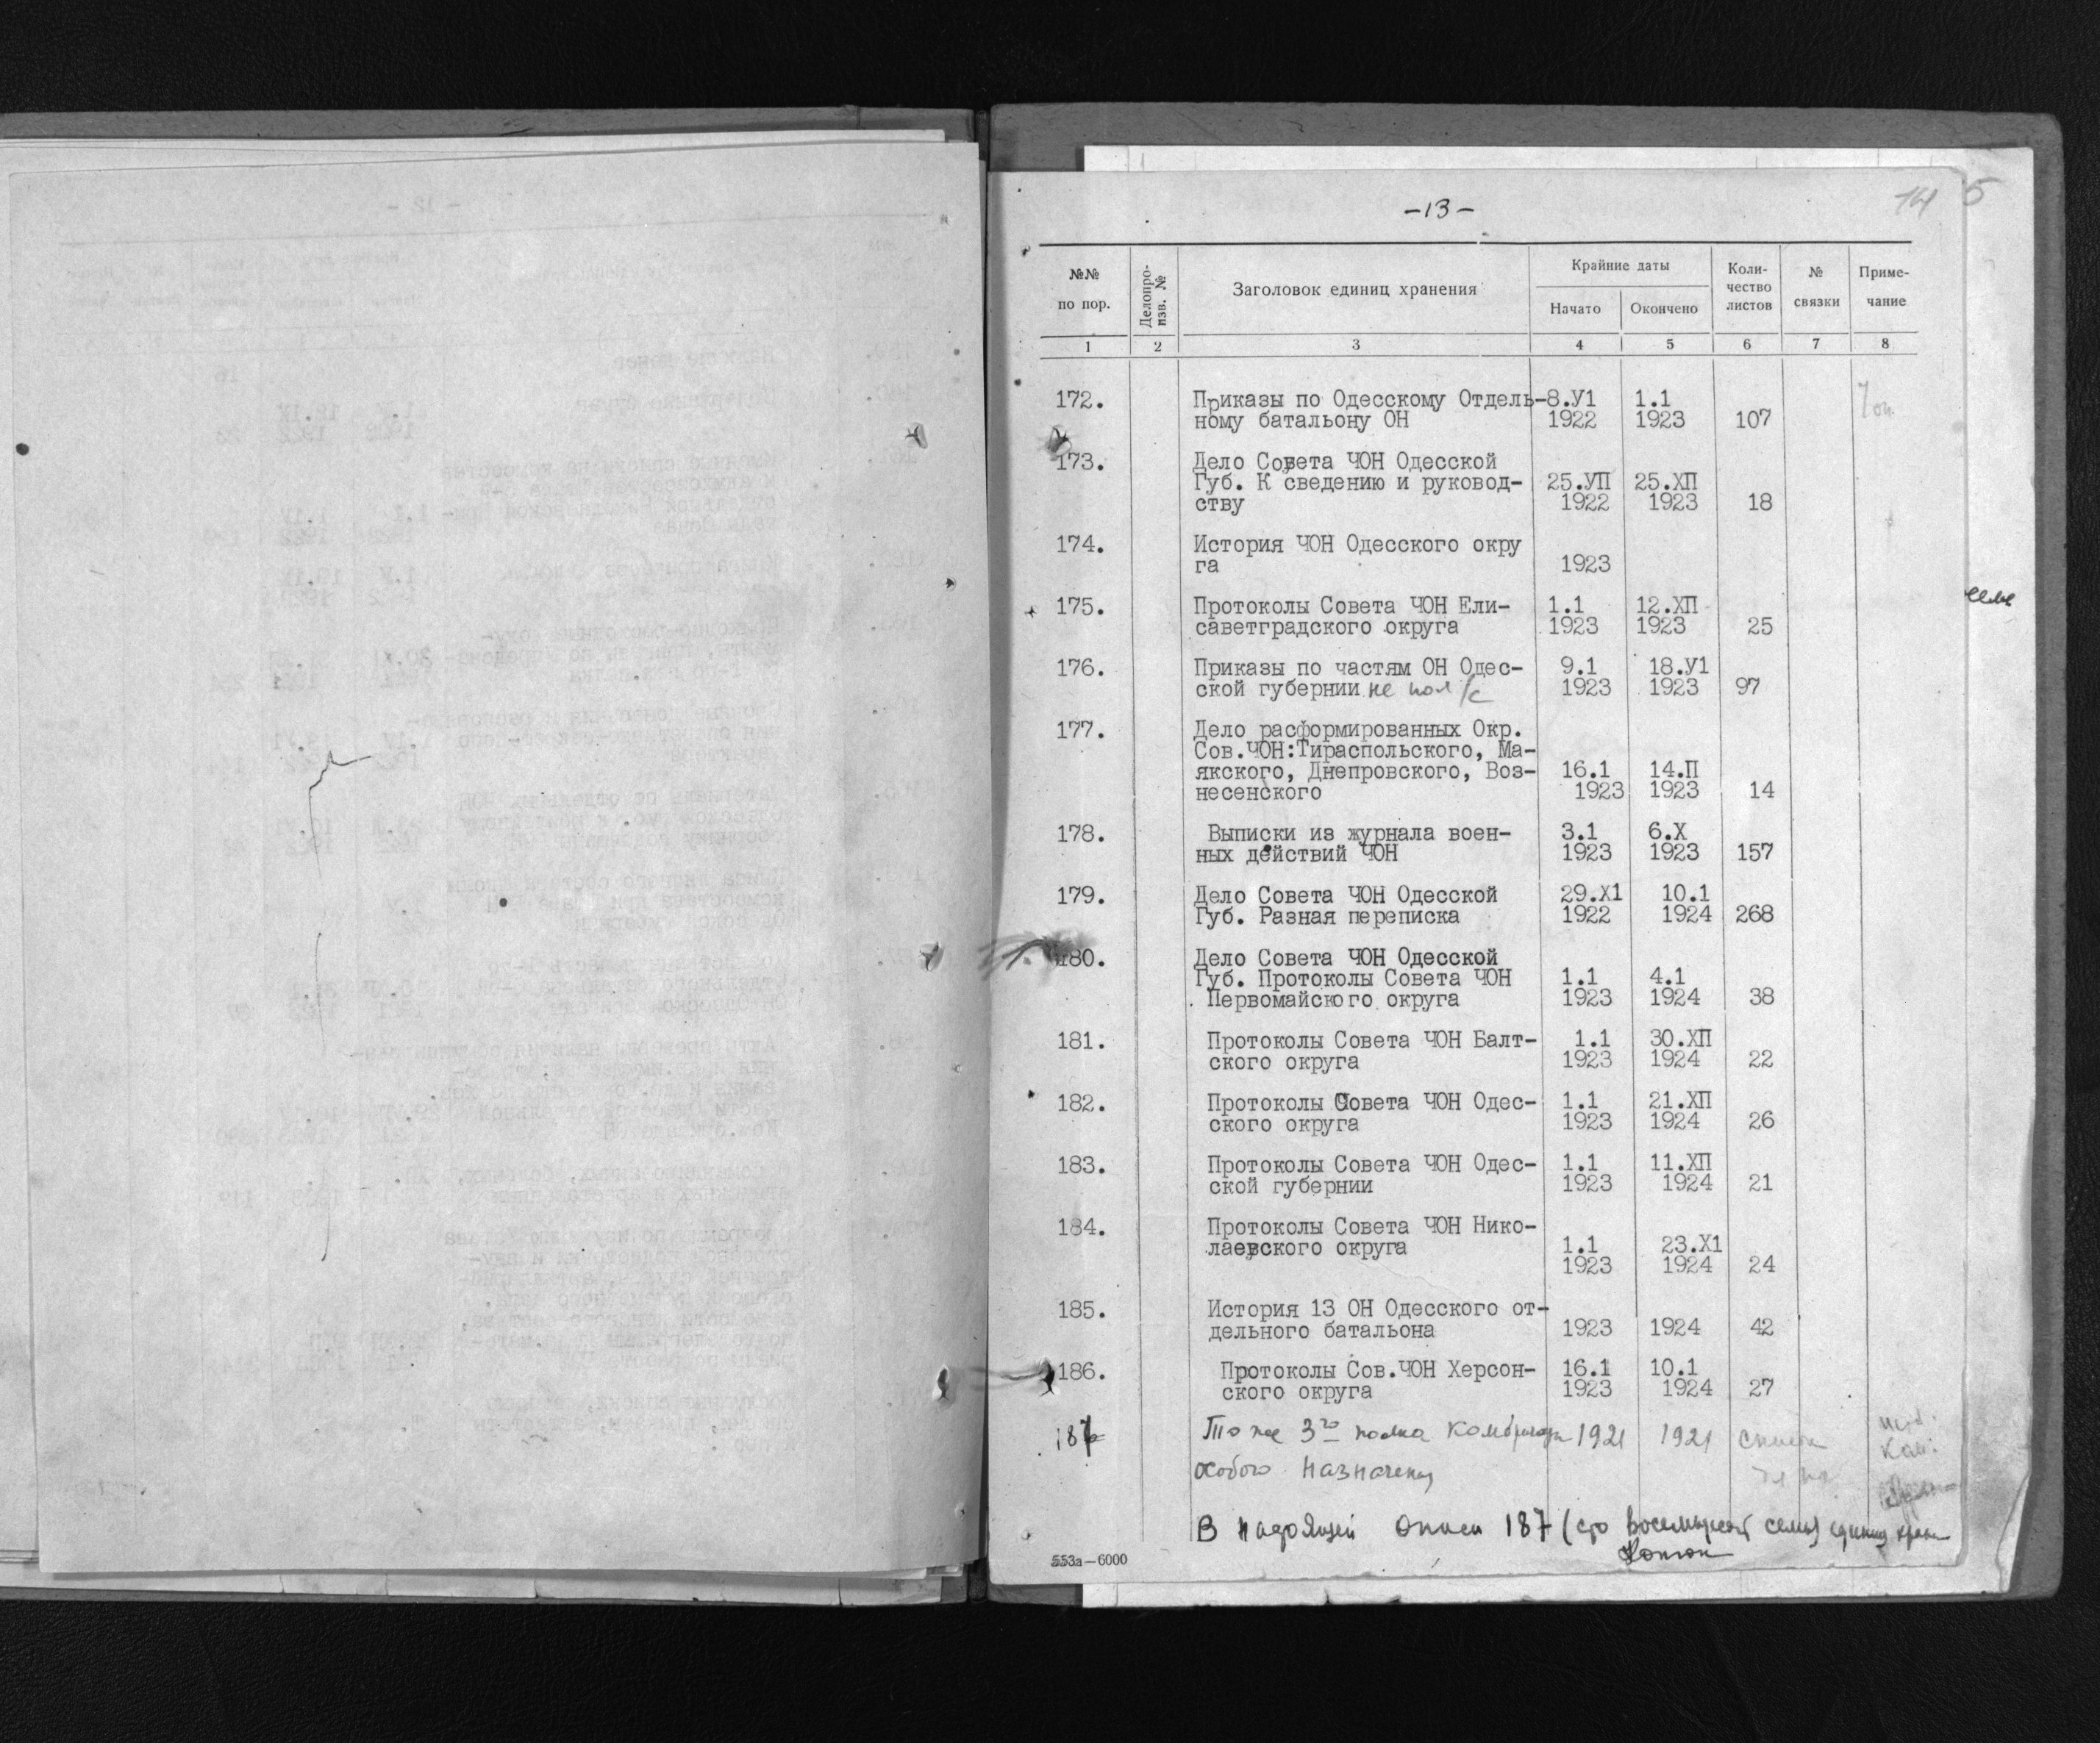 -13-
14 5
№№ по пор.
Делопро-изв. №
Заголовок единиц хранения
Крайние даты
Начато
Окончено
Коли-чество листов
№ связки
Приме-чание
1 2 3 4 5 6 7 8
172. Приказы по Одесскому Отдель- 8.У1 1.1
ному батальону ОН 1922 1923 107
173. Дело Совета ЧОН Одесской
Губ. К сведению и руковод- 25.УП 25.ХП
ству 1922 1923 18
174. История ЧОН Одесского окру
га 1923
175. Протоколы Совета ЧОН Ели- 1.1 12.ХП
саветградского округа 1923 1923 25
176. Приказы по частям ОН Одес- 9.1 18.У1
ской губернии не пол л/с 1923 1923 97
177. Дело расформированных Окр.
Сов.ЧОН:Тираспольского, Ма-
якского, Днепровского, Воз- 16.1 14.П
несенского 1923 1923 14
178. Выписки из журнала воен- 3.1 6.Х
ных действий ЧОН 1923 1923 157
179. Дело Совета ЧОН Одесской 29.Х1 10.1
Губ. Разная переписка 1922 1924 268
180. Дело Совета ЧОН Одесской
Губ. Протоколы Совета ЧОН 1.1 4.1
Первомайского округа 1923 1924 38
181. Протоколы Совета ЧОН Балт- 1.1 30.ХП
ского округа 1923 1924 22
182. Протоколы Совета ЧОН Одес- 1.1 21.ХП
ского округа 1923 1924 26
183. Протоколы Совета ЧОН Одес- 1.1 11.ХП
ской губернии 1923 1924 21
184. Протоколы Совета ЧОН Нико-
лаевского округа 1.1 23.Х1
1923 1924 24
185. История 13 ОН Одесского от-
дельного батальона 1923 1924 42
186. Протоколы Сов.ЧОН Херсон- 16.1 10.1
ского округа 1923 1924 27
187 То же 3го полка Комбригады 1921 1921
особого назначения
В настоящей описи 187 (сто восемьдесят семь) единиц хран
553а—6000